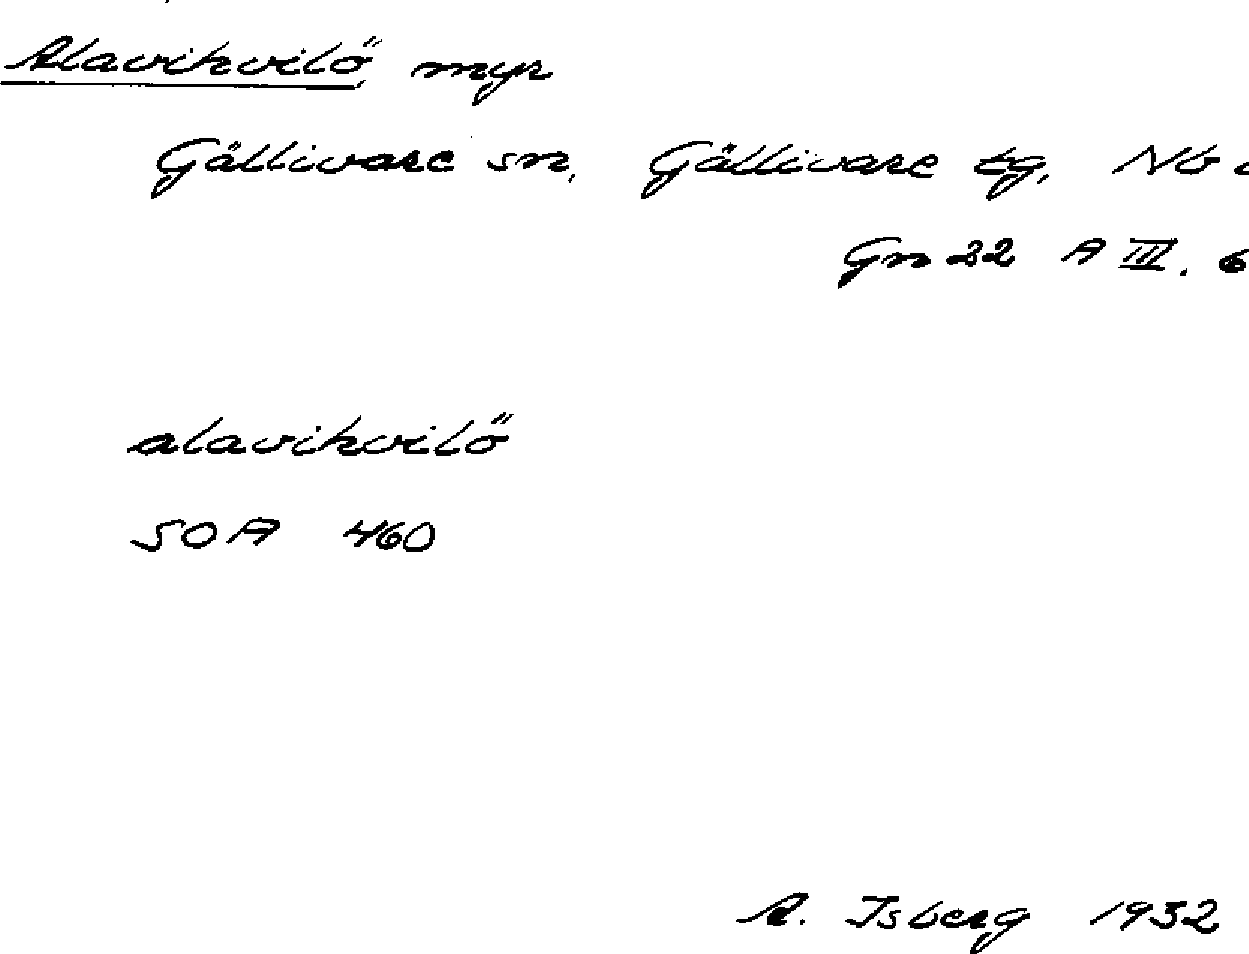 Alavikvilö myr
Gällivare sn, Gällivare tg, Nb
Gn 22 A III. 6
alavikvilö
SOA 460
A. Isberg 1932